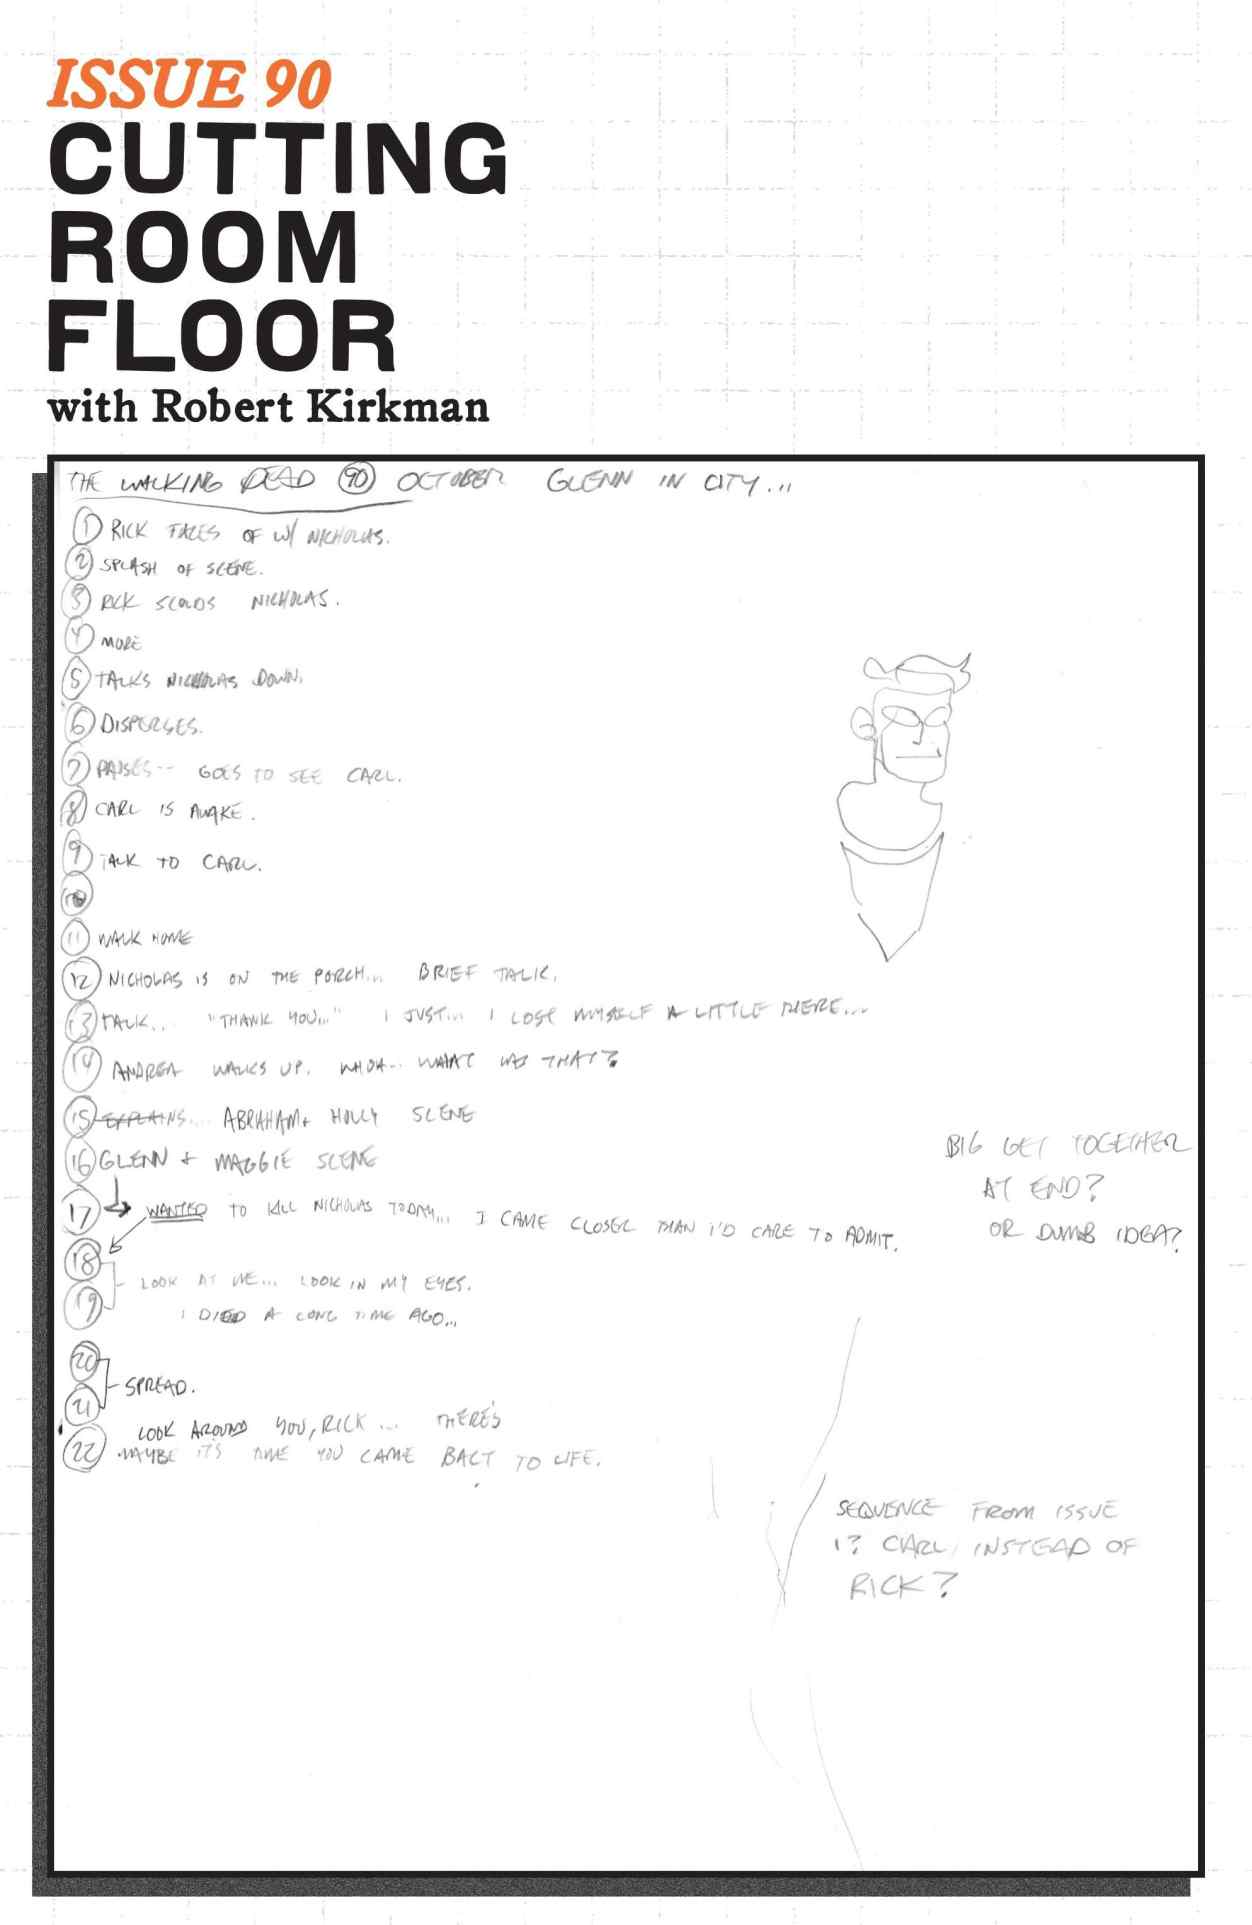 ISSUE 90
CUTTING
ROOM
FLOOR
with Robert Kirkman
THE WALKING DEAD 90 OCTOBER GLENN IN CITY...
1 RICK FACES OF W/ NICHOLAS.
2 SPLASH OF SCENE.
3 RICK SCOLDS NICHOLAS.
4 MORE
5 TALKS NICHOLAS DOWN.
6 DISPERSES.
7 PAUSES-- GOES TO SEE CARL.
8 CARL IS AWAKE.
9 TALK TO CARL.
10
11 WALK HOME
12 NICHOLAS IS ON THE PORCH... BRIEF TALK.
13 TALK... "THANK YOU..." I JUST... I LOSE MYSELF A LITTLE THERE...
14 ANDREA WALKS UP. WHOA... WHAT WAS THAT?
15 EXPLAINS... ABRAHAM + HOLLY SCENE
16 GLENN + MAGGIE SCENE
17 WANTED TO KILL NICHOLAS TODAY... I CAME CLOSER THAN I'D CARE TO ADMIT.
18
19
LOOK AT ME... LOOK IN MY EYES.
I DIED A LONG TIME AGO...
20
21
SPREAD.
LOOK AROUND YOU, RICK... THERE'S
22 MAYBE IT'S TIME YOU CAME BACT TO LIFE.
BIG GET TOGETHER
AT END?
OR DUMB IDEA?
SEQUENCE FROM ISSUE
1? CARL INSTEAD OF
RICK?